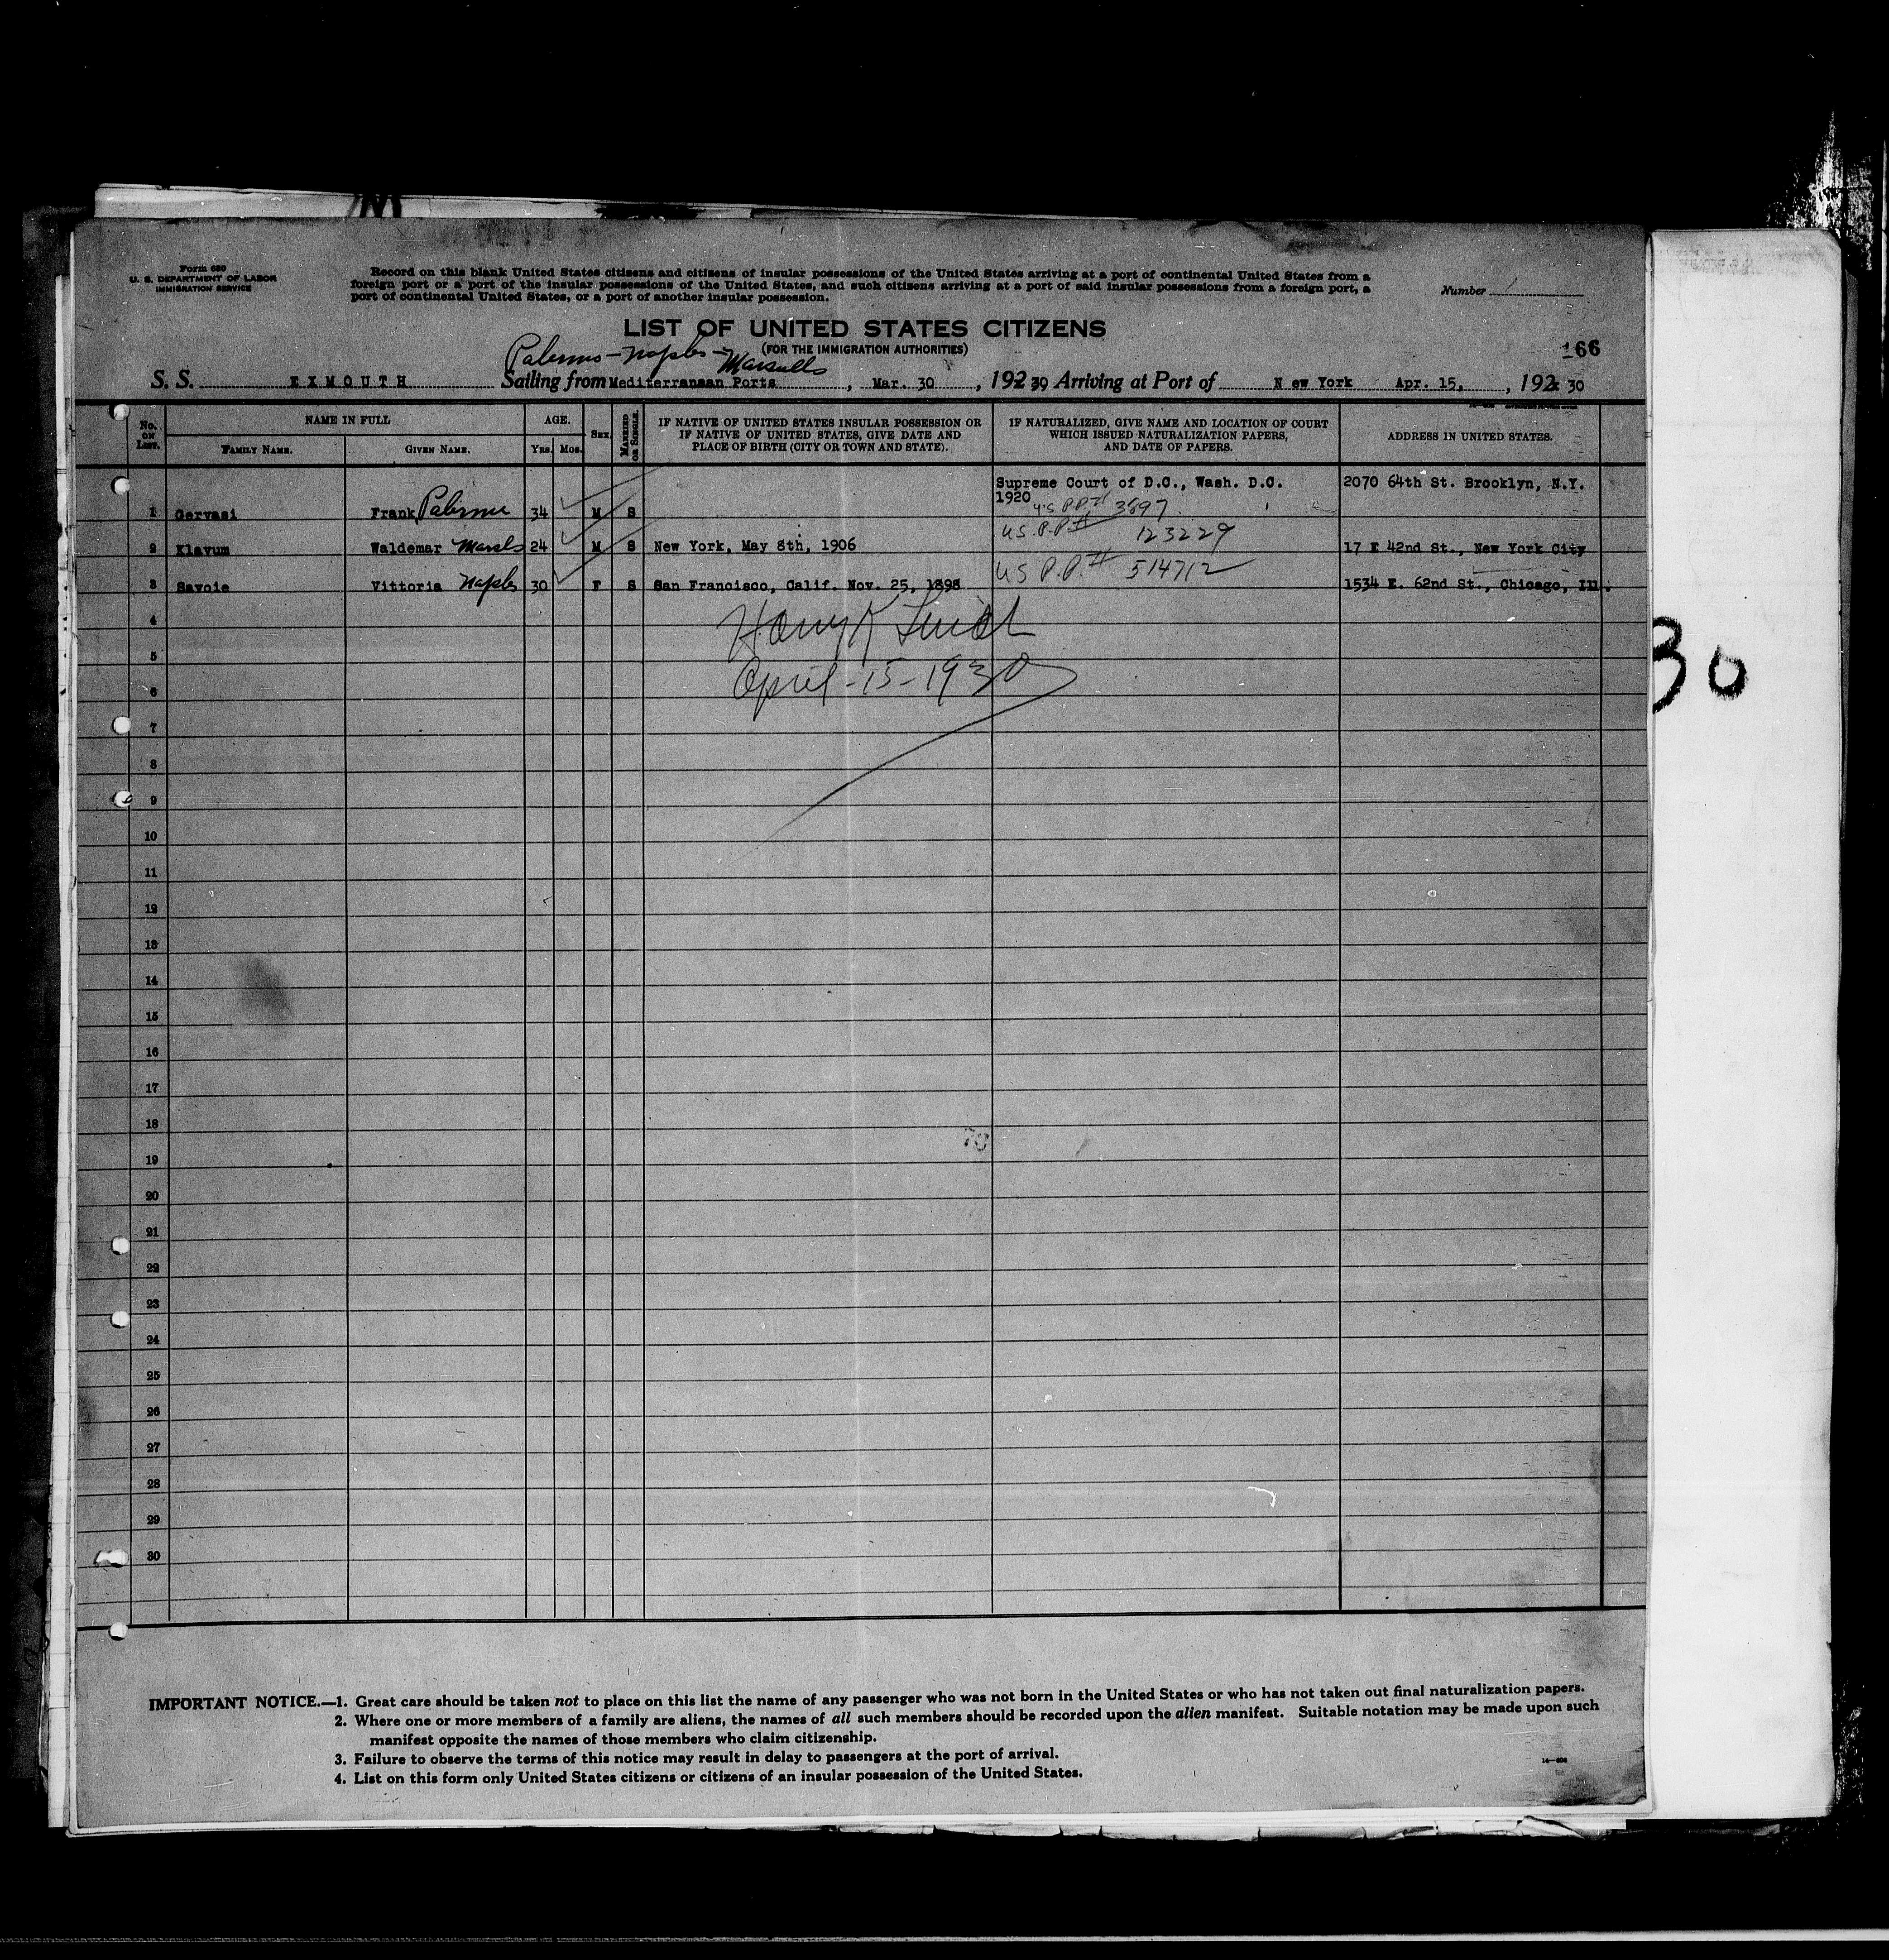 Form 630
U. S. DEPARTMENT OF LABOR
IMMIGRATION SERVICE
Record on this blank United States citizens and citizens of insular possessions of the United States arriving at a port of continental United States from a
foreign port or a port of the insular possessions of the United States, and such citizens arriving at a port of said insular possessions from a foreign port, a
port of continental United States, or a port of another insular possession.
Number
LIST OF UNITED STATES CITIZENS
(FOR THE IMMIGRATION AUTHORITIES)
166
Palermo - Naples - Marseills
S. S. EXMOUTH Sailing from Mediterranean Ports, Mar. 30, 192 30 Arriving at Port of New York Apr. 15, , 192 30
No. ON LIST. NAME IN FULL AGE. SEX MARRIED OR SINGLE. IF NATIVE OF UNITED STATES INSULAR POSSESSION OR IF NATIVE OF UNITED STATES, GIVE DATE AND PLACE OF BIRTH (CITY OR TOWN AND STATE). IF NATURALIZED, GIVE NAME AND LOCATION OF COURT WHICH ISSUED NATURALIZATION PAPERS, AND DATE OF PAPERS. ADDRESS IN UNITED STATES.
FAMILY NAME. GIVEN NAME. Yrs. Mos.
Supreme Court of D.C., Wash. D.C. 2070 64th St. Brooklyn, N.Y.
1 Gervasi Frank Palermo 34 M S 1920 U.S P.P.# 3897
2 Klavum Waldemar Marsls 24 M S New York, May 8th, 1906 U.S. P.P.# 123229 17 E 42nd St., New York City
3 Savoie Vittoria Naples 30 F S San Francisco, Calif. Nov. 25, 1898 US P.P.# 514712 1534 E. 62nd St., Chicago, Ill.
4
5
April-15-1930
6
30
7
8
9
10
11
12
13
14
15
16
17
18
19
20
21
22
23
24
25
26
27
28
29
30
IMPORTANT NOTICE.—1. Great care should be taken not to place on this list the name of any passenger who was not born in the United States or who has not taken out final naturalization papers.
2. Where one or more members of a family are aliens, the names of all such members should be recorded upon the alien manifest. Suitable notation may be made upon such
manifest opposite the names of those members who claim citizenship.
3. Failure to observe the terms of this notice may result in delay to passengers at the port of arrival.
4. List on this form only United States citizens or citizens of an insular possession of the United States.